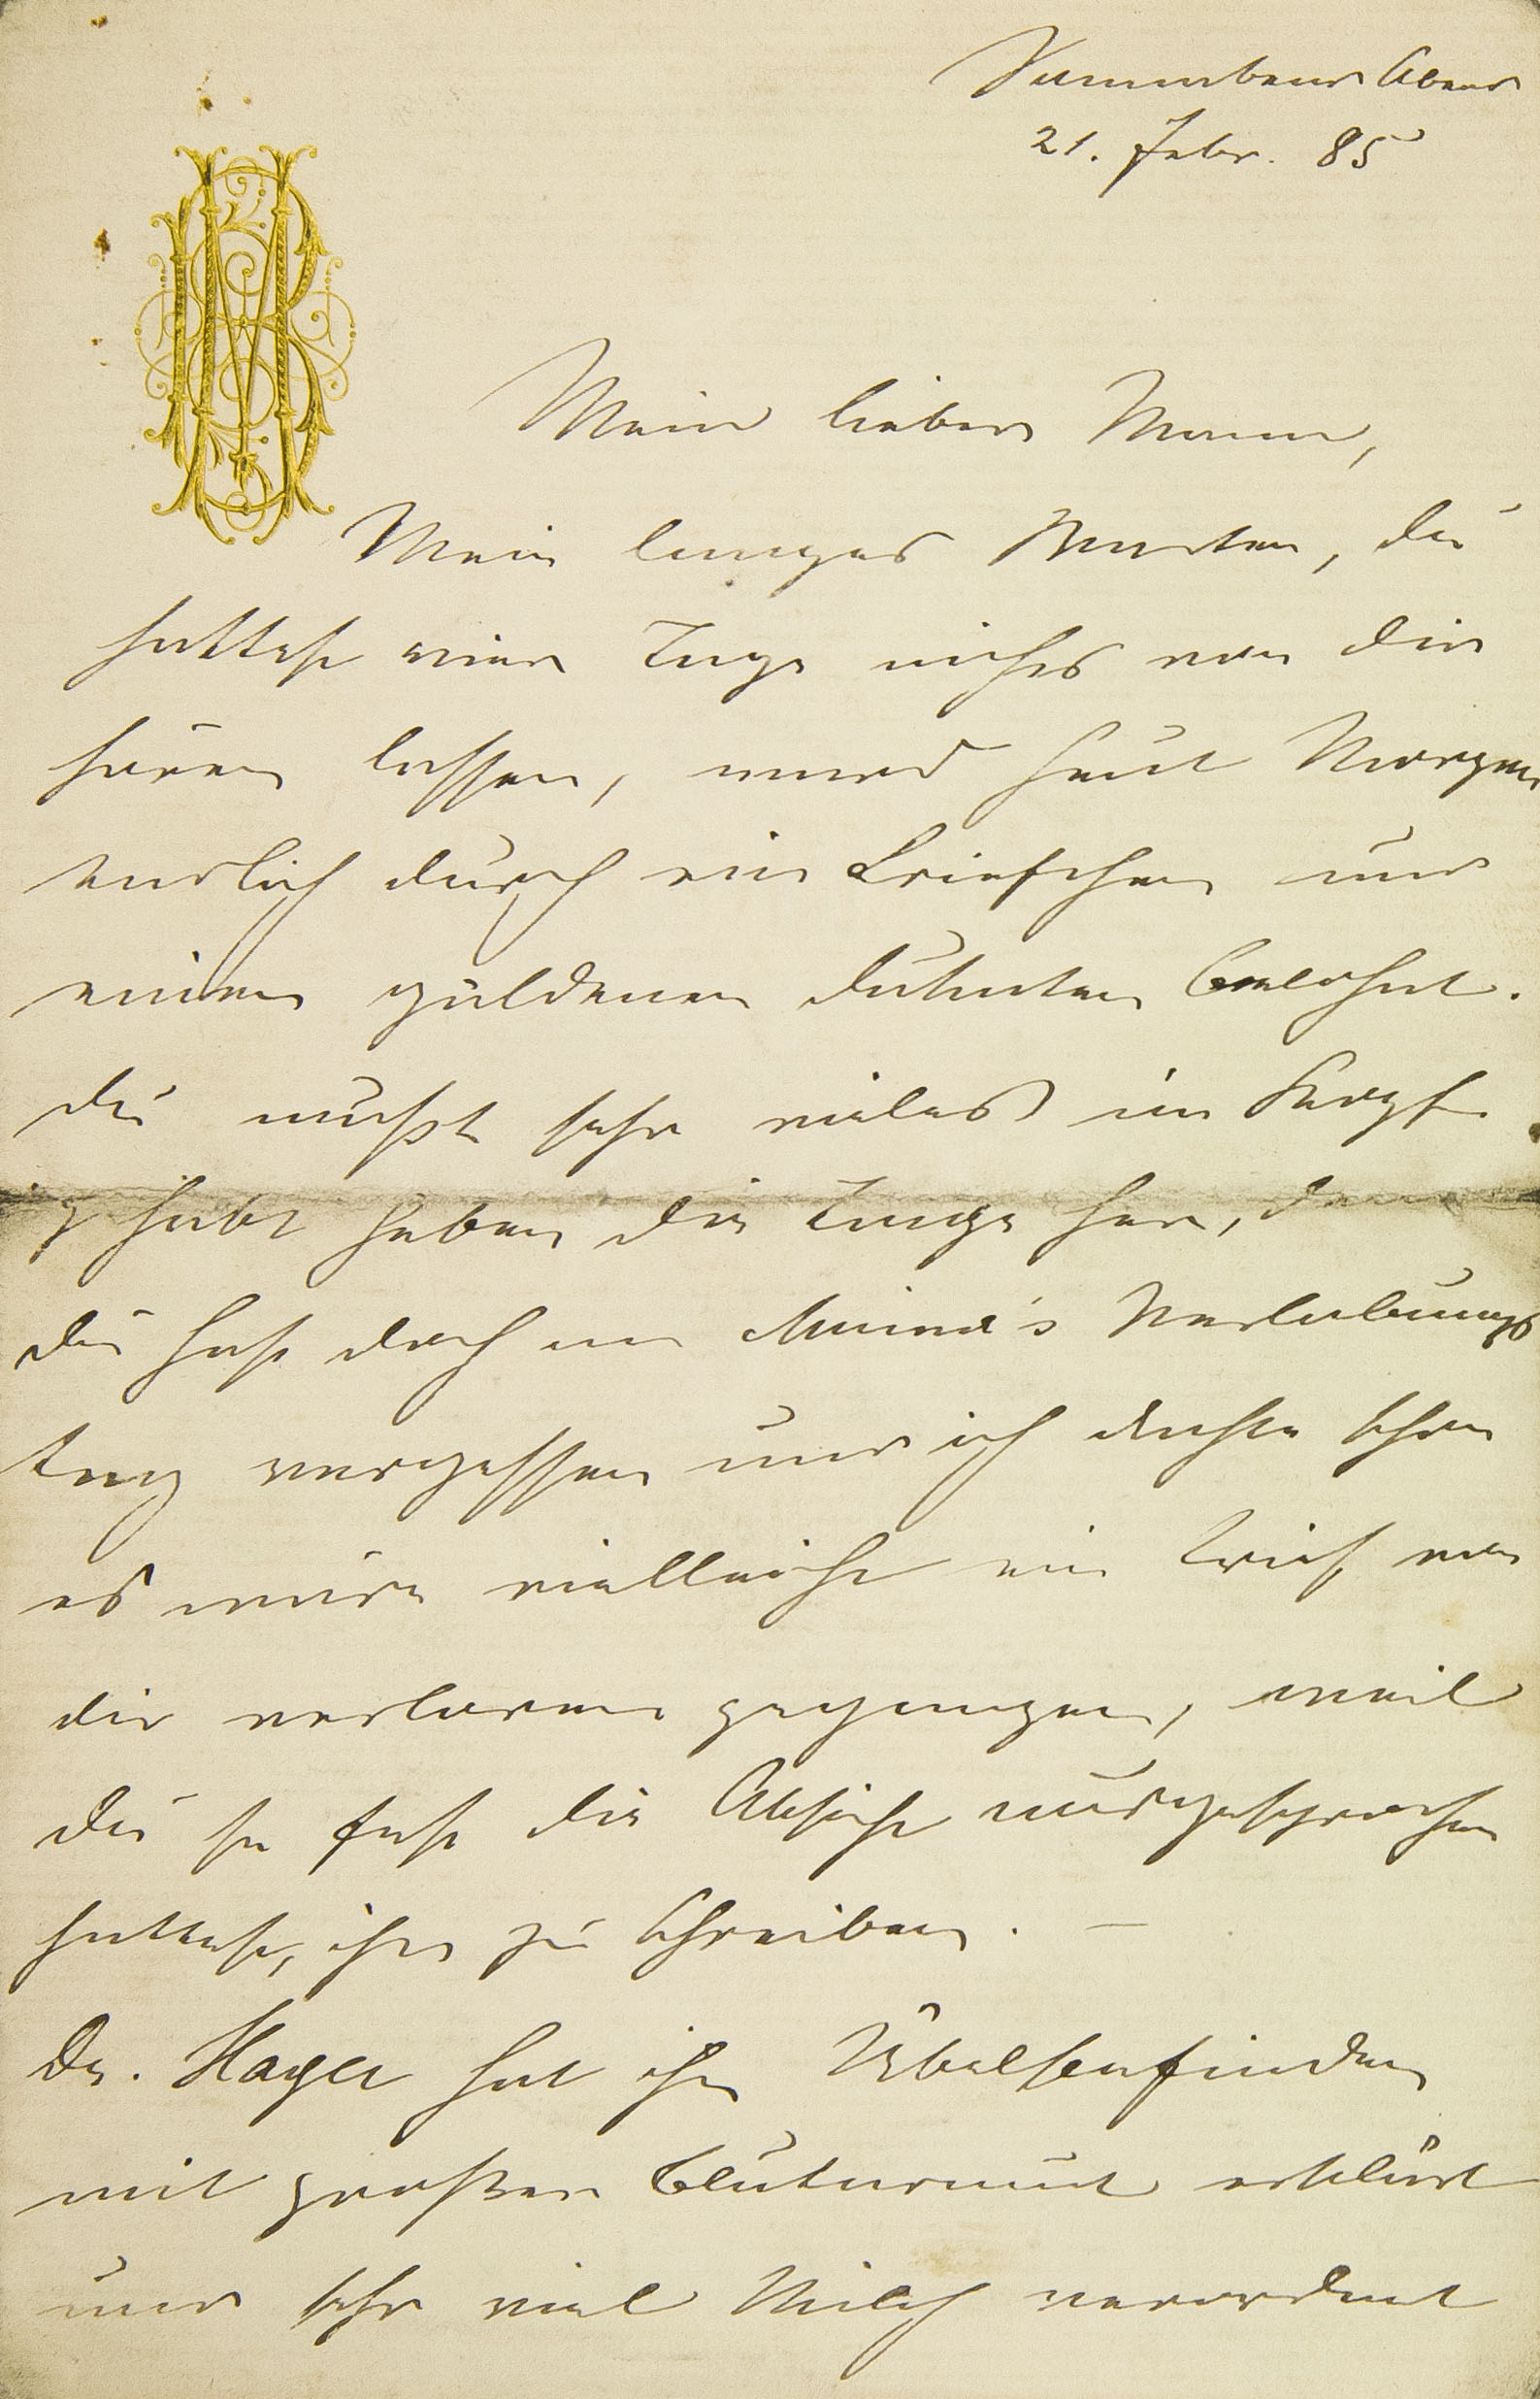 Sonnabend Abend
21. Febr. 85
Mein lieber Mann,
Mein langes Warten, du
hattest vier Tage nichts von dir
hören lassen, ward heut Morgen
endlich durch ein Briefchen und
einen güldenen Dukaten belohnt.
du mußt sehr vieles im Kopf
gehabt haben die Tage her, denn
du hast doch an Minna's Verlobungs
tag vergessen und ich dachte schon
es wäre vielleicht ein Brief von
dir verloren gegangen, weil
du so fest die Absicht ausgesprochen
hattest, ihr zu schreiben. —
Dr. Hager hat ihr Übelbefinden
mit großer Blutarmut erklärt
und sehr viel Milch verordnet